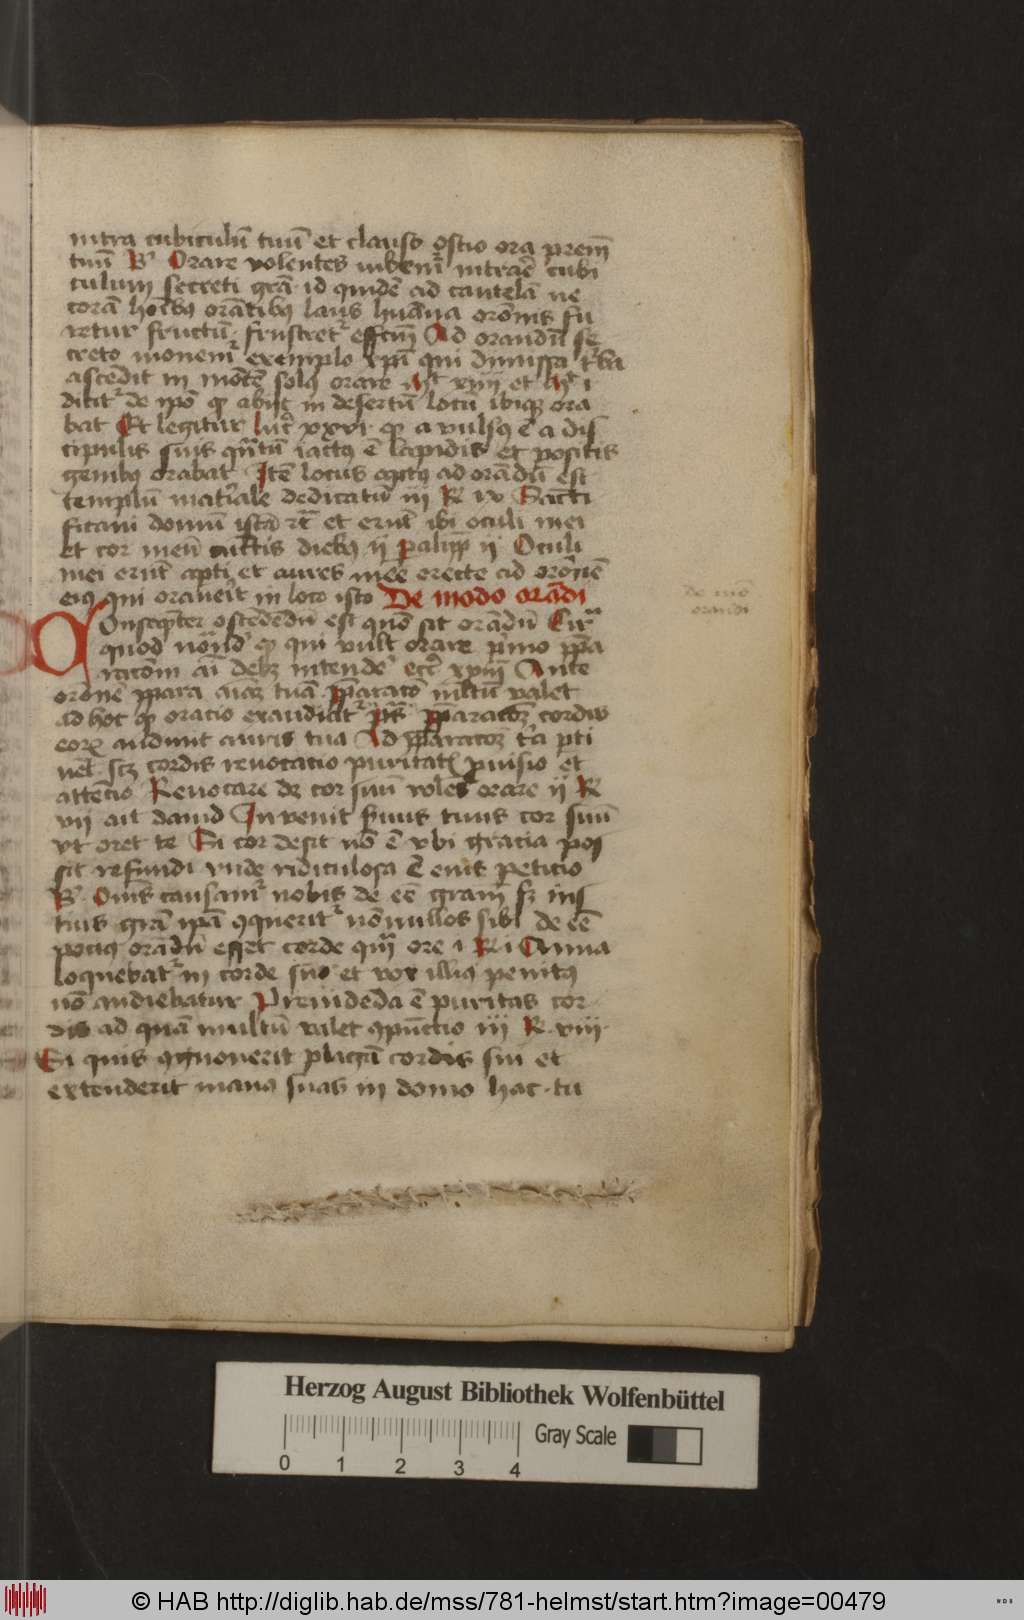 intra cubiculū tuū et clauso ostio ora prem̄
tuū B Orare volentes iubem̄ intrare cubi
culum secreti grā id quidē ad cautelā ne
corā hoībꝰ orātibꝰ laus huāna orōnis fu
retur fructū frustret effcm̄ Ad orandū se
creto monem̄ exemplo xp̄i qui dimissa t̄ba
ascēdit in mōtē solꝰ orare Mt xiiii et Mr i
dicit de ipō ꝙ abijt in desertū locū ibiqꝫ ora
bat Et legitur luc xxvi ꝙ a vulsꝰ ē a dis
cipulis suis quātū iactꝰ ē lapidis et positis
genibꝰ orabat Itē locus aptꝰ ad orādū est
templū mat̄iale dedicatū iij R ix Sancti
ficaui domū istā et erūt ibi oculi mei
et cor meū cūctis diebꝰ ij palip̄ ij Oculi
mei erūt apti et aures mee erecte ad orōnē
eiꝰ qui orauerīt in loco isto De modo orādi
Onseqūter ostēdēdū est quō sit orādū Cir
quod notād ꝙ qui vult orare p̄mo p̄pa
rōem ad debꝫ intende ecc̄ xviij Ante
orōnē p̄para aīaꝫ tuā p̄paratō mltū valet
ad hoc ꝙ oracio exaudiat ps p̄paracōꝫ cordis
eorꝫ audiuit auris tua Ad p̄paracōꝫ t̄a pti
nēt scꝫ cordis reuocatio puritatꝭ puisio et
attēcio Reuocare dꝫ cor suū volēs orare ij R
vij ait dauid Inuenit s̄uus tuus cor suū
vt oret te Si cor desit nō ē vbi gracia pos
sit refundi vnde ridiculosa ē eius peticio
B Om̄s causam̄ nobis de eē gram̄ sꝫ ius
tius grā ipā ꝯquerit nōnullos sibi de eē
pociꝰ orādū esset corde qm̄ ore i R i Anna
loquebat in corde suo et vox illiꝰ penitꝰ
nō audiebatur Prouidēda ē puritas cor
dis ad quā multū valet ꝯpūctio iij R viij
Si quis ꝯgnouerit plagā cordis sui et
extenderit manꝰ suas in domo hac tu
de mō
orandi
Herzog August Bibliothek Wolfenbüttel
Gray Scale
0 1 2 3 4
© HAB http://diglib.hab.de/mss/781-helmst/start.htm?image=00479